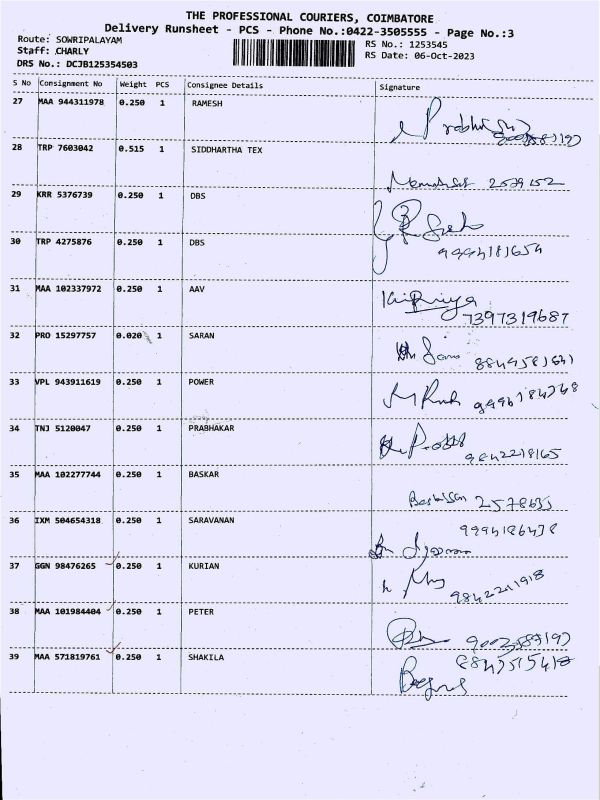 THE PROFESSIONAL COURIERS, COIMBATORE
Delivery Runsheet - PCS - Phone No.:0422-3505555 - Page No.:3
Route: SOWRIPALAYAM
RS No.: 1253545
Staff: CHARLY
RS Date: 06-Oct-2023
DRS No.: DCJB125354503
S No Consignment No Weight PCS Consignee Details Signature
27 MAA 944311978 0.250 1 RAMESH
28 TRP 7603042 0.515 1 SIDDHARTHA TEX
29 KRR 5376739 0.250 1 DBS
30 TRP 4275876 0.250 1 DBS
9994181654
31 MAA 102337972 0.250 1 AAV
7397319687
32 PRO 15297757 0.020 1 SARAN
33 VPL 943911619 0.250 1 POWER
34 TNJ 5120047 0.250 1 PRABHAKAR
9842218165
35 MAA 102277744 0.250 1 BASKAR
36 IXM 504654318 0.250 1 SARAVANAN
37 GGN 98476265 0.250 1 KURIAN
9842211918
38 MAA 101984404 0.250 1 PETER
39 MAA 571819761 0.250 1 SHAKILA